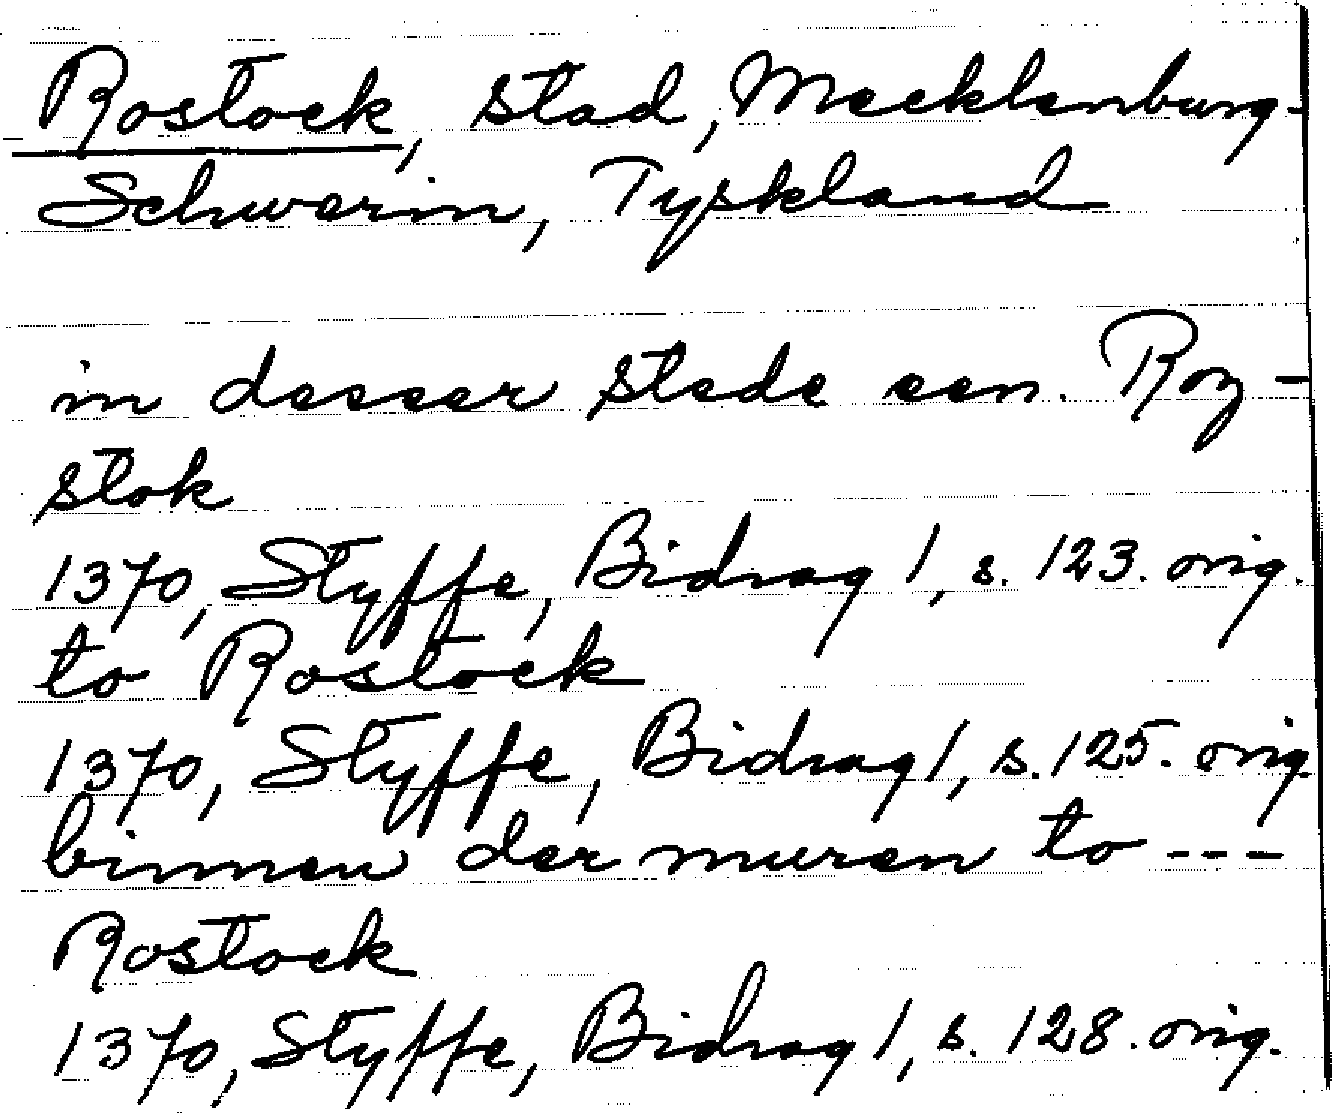 Rostock, stad, Mecklenburg-
Schwerin, Tyskland
in desser stede een. Roz-
stok
1370, Styffe, Bidrag 1, s. 123. orig.
to Rostock
1370, Styffe, Bidrag 1, s. 125. orig
binnen der muren to ---
Rostock
1370, Styffe, Bidrag 1, s. 128. orig.